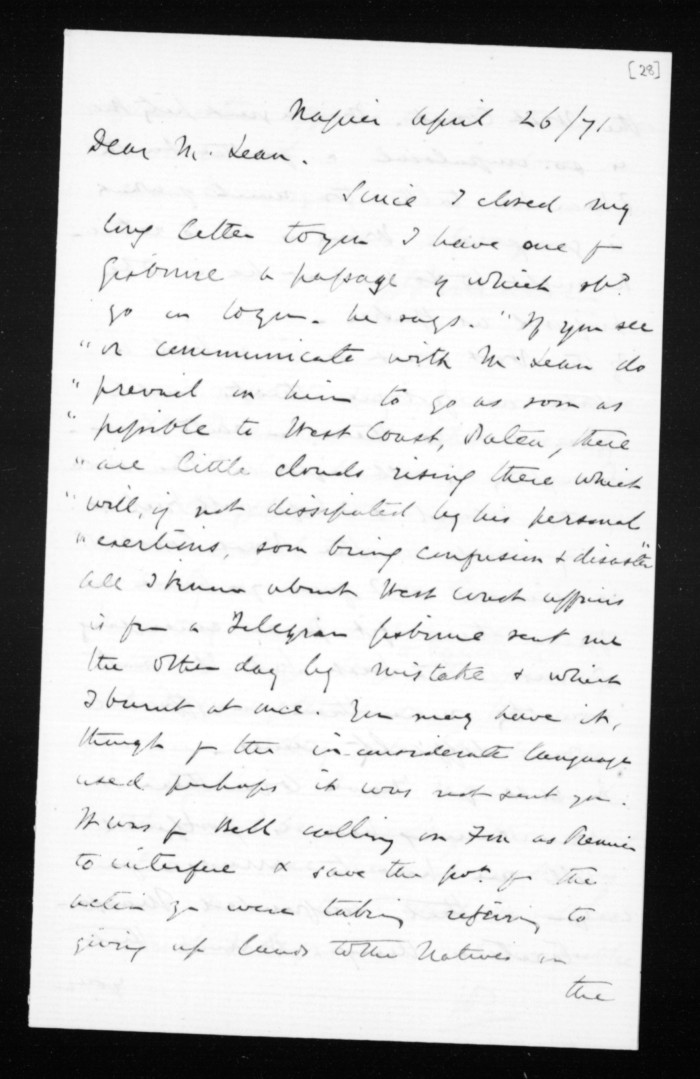 [28]
Napier April 26/71
Dear McLean.
Since I closed my
long letter to you I have one fr
Gisborne a passage of which shd
go on to you. he says. "If you see
"or communicate with McLean do
"prevail on him to go as soon as
"possible to West Coast, Patea, there
"are little clouds rising there which
"will, if not dissipated by his personal
"exertions, soon bring confusion & disaster"
All I know about West Coast affairs
is fm a Telegram Gisborne sent me
the other day by mistake & which
I burnt at once. You may have it,
though fr the inconsiderate language
used perhaps it was not sent you.
It was fr Bell calling on Fox as Premier
to interfere & save the fr the
action you were taking referring to
giving up lands to the Natives on
the